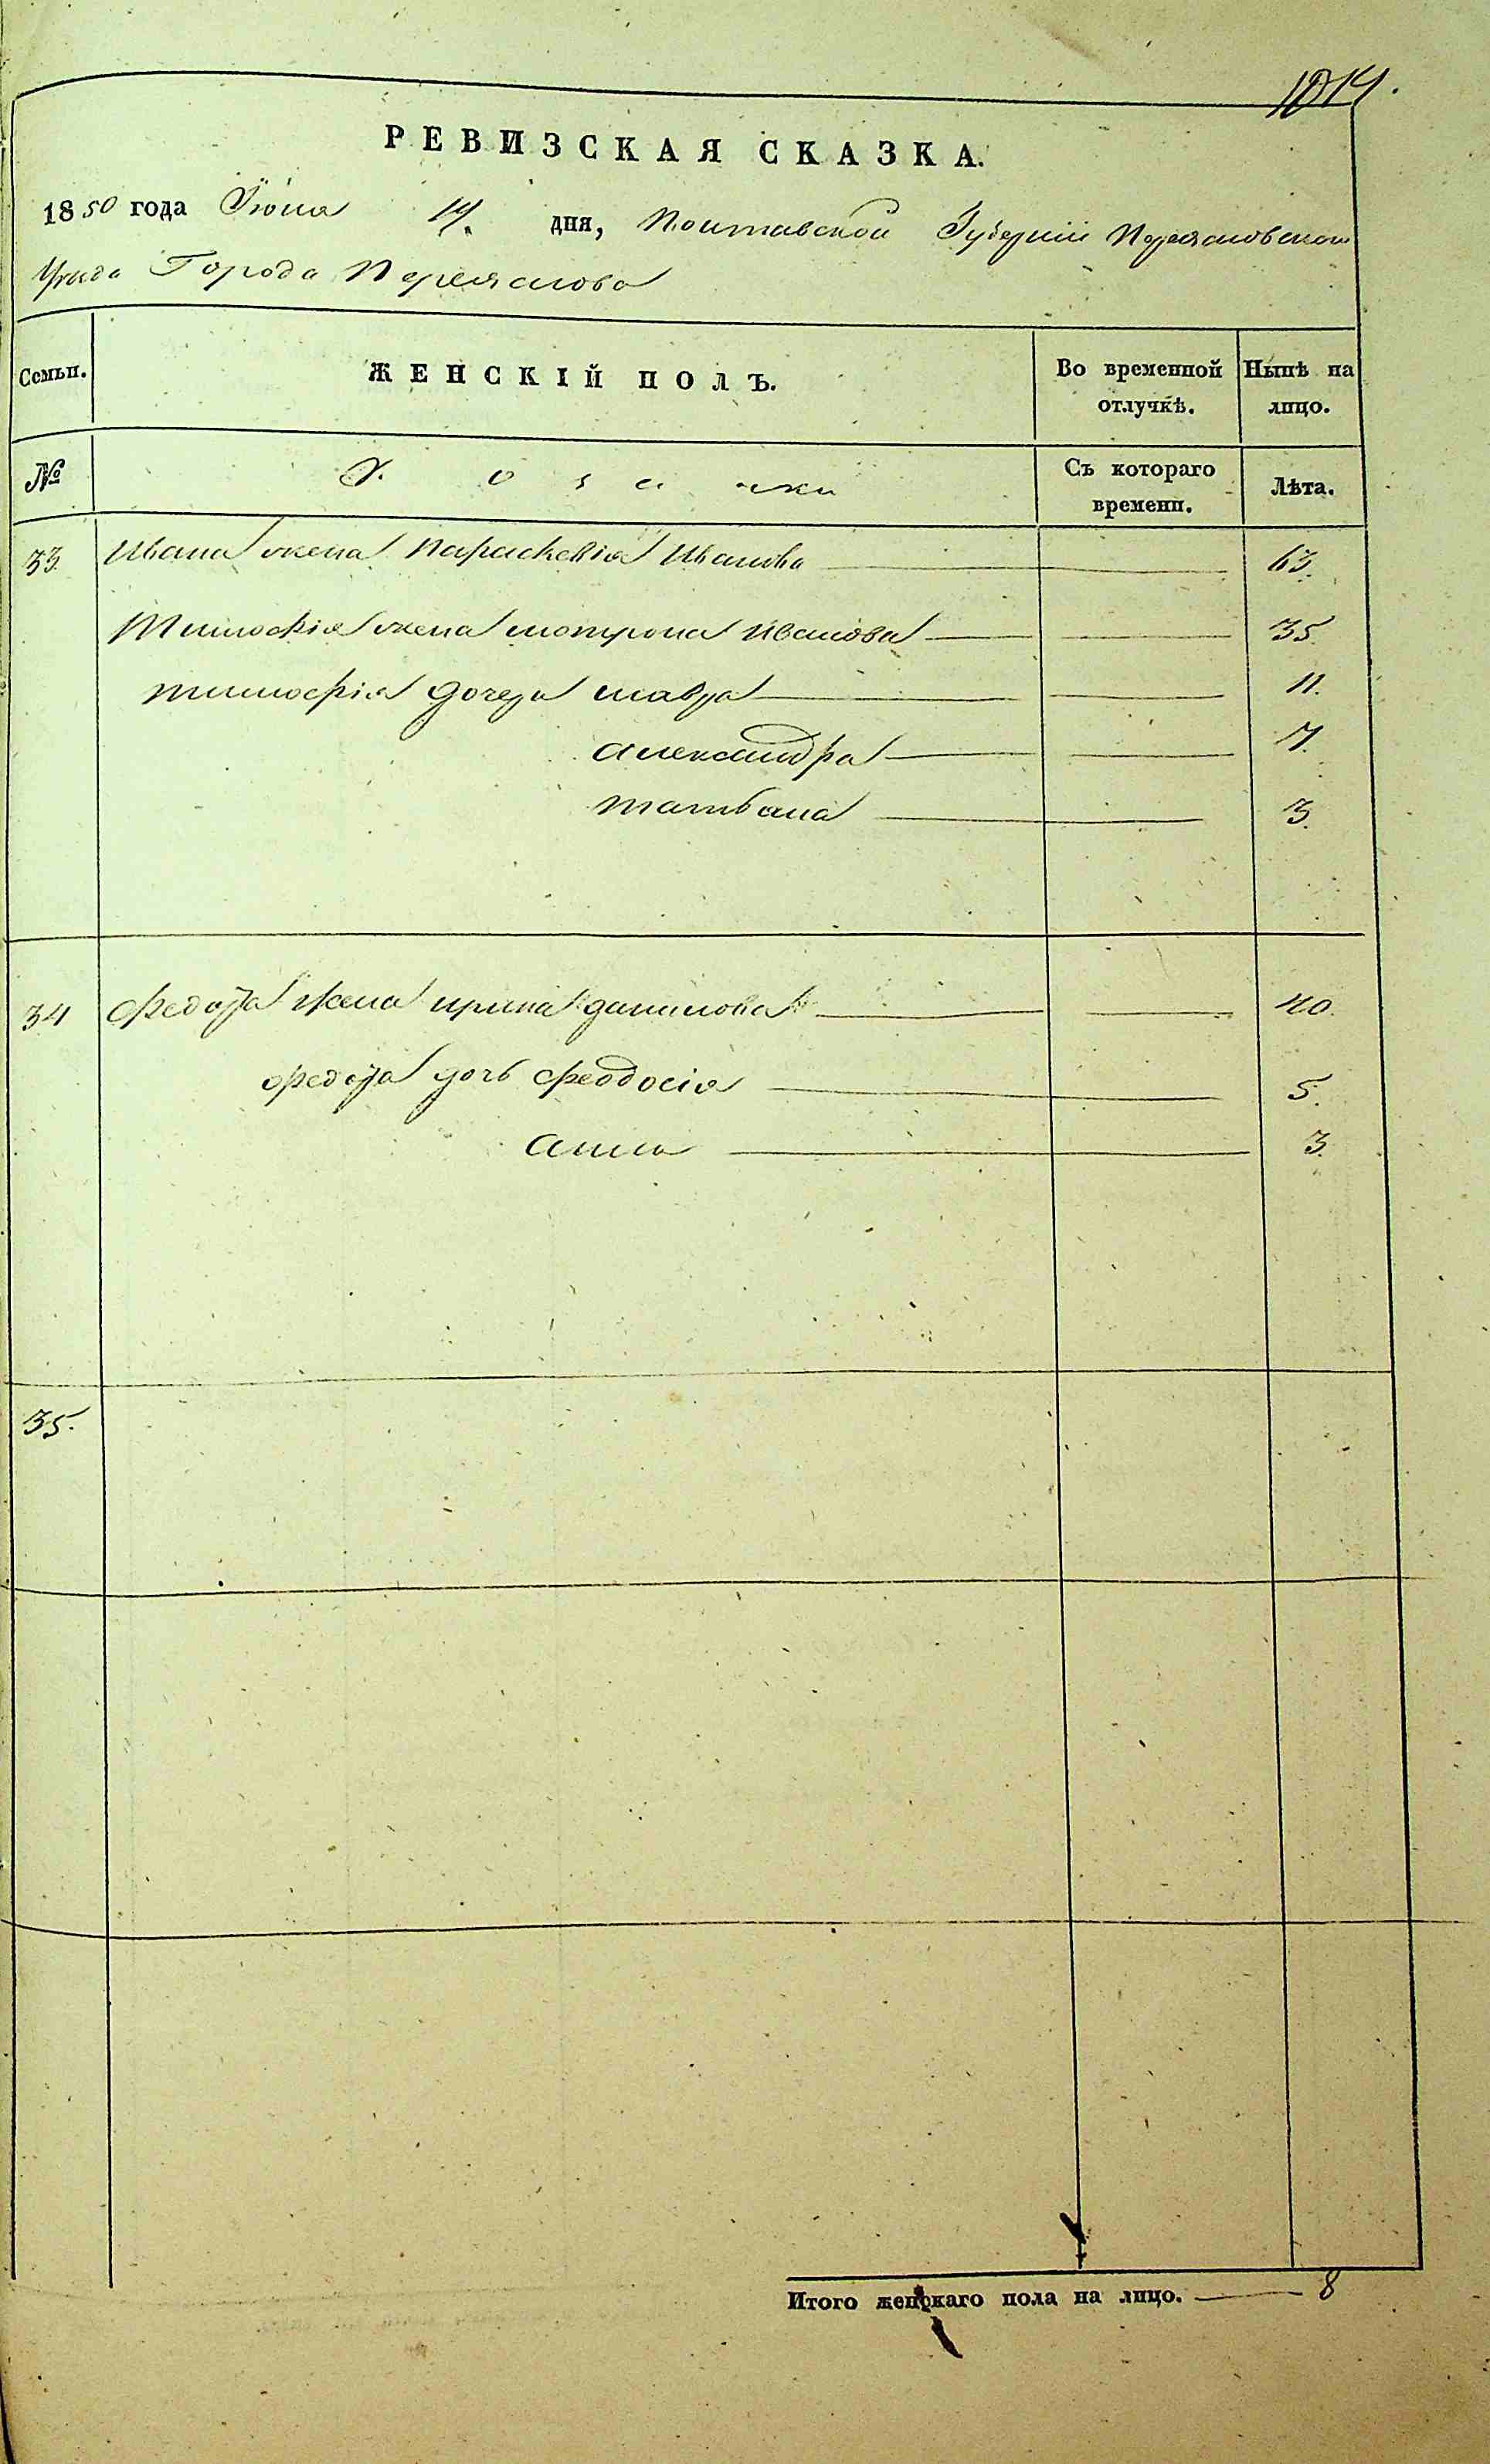 1014.
РЕВИЗСКАЯ СКАЗКА.
1850 года Іюня 14. дня, Полтавской Губерніи Переяславскаго
Уѣзда Города Переяслова
Семьи. ЖЕНСКІЙ ПОЛЪ. Во временной отлучкѣ. Нынѣ на лицо.
№ Козачки Съ котораго времени. Лѣта.
33. Ивана жена Параскевія Иванова 63.
Тимофія жена мотрона Иванова 35.
тимофія дочери мавра 11.
александра 7.
татьяна 3.
34 Федота жена ирина данилова 40.
федота дочь феодосія 5.
анна 3.
35.
Итого женскаго пола на лицо. 8